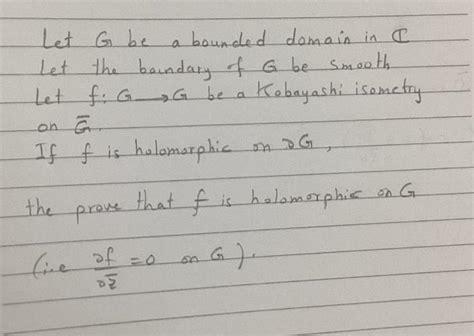 Let G be a bounded domain in ℂ
Let the boundary of G be smooth
Let f: G → G be a Kobayashi isometry
on G̅.
If f is holomorphic on ∂G,
the prove that f is holomorphic on G
(i.e ∂f/∂z̅ = 0 on G).